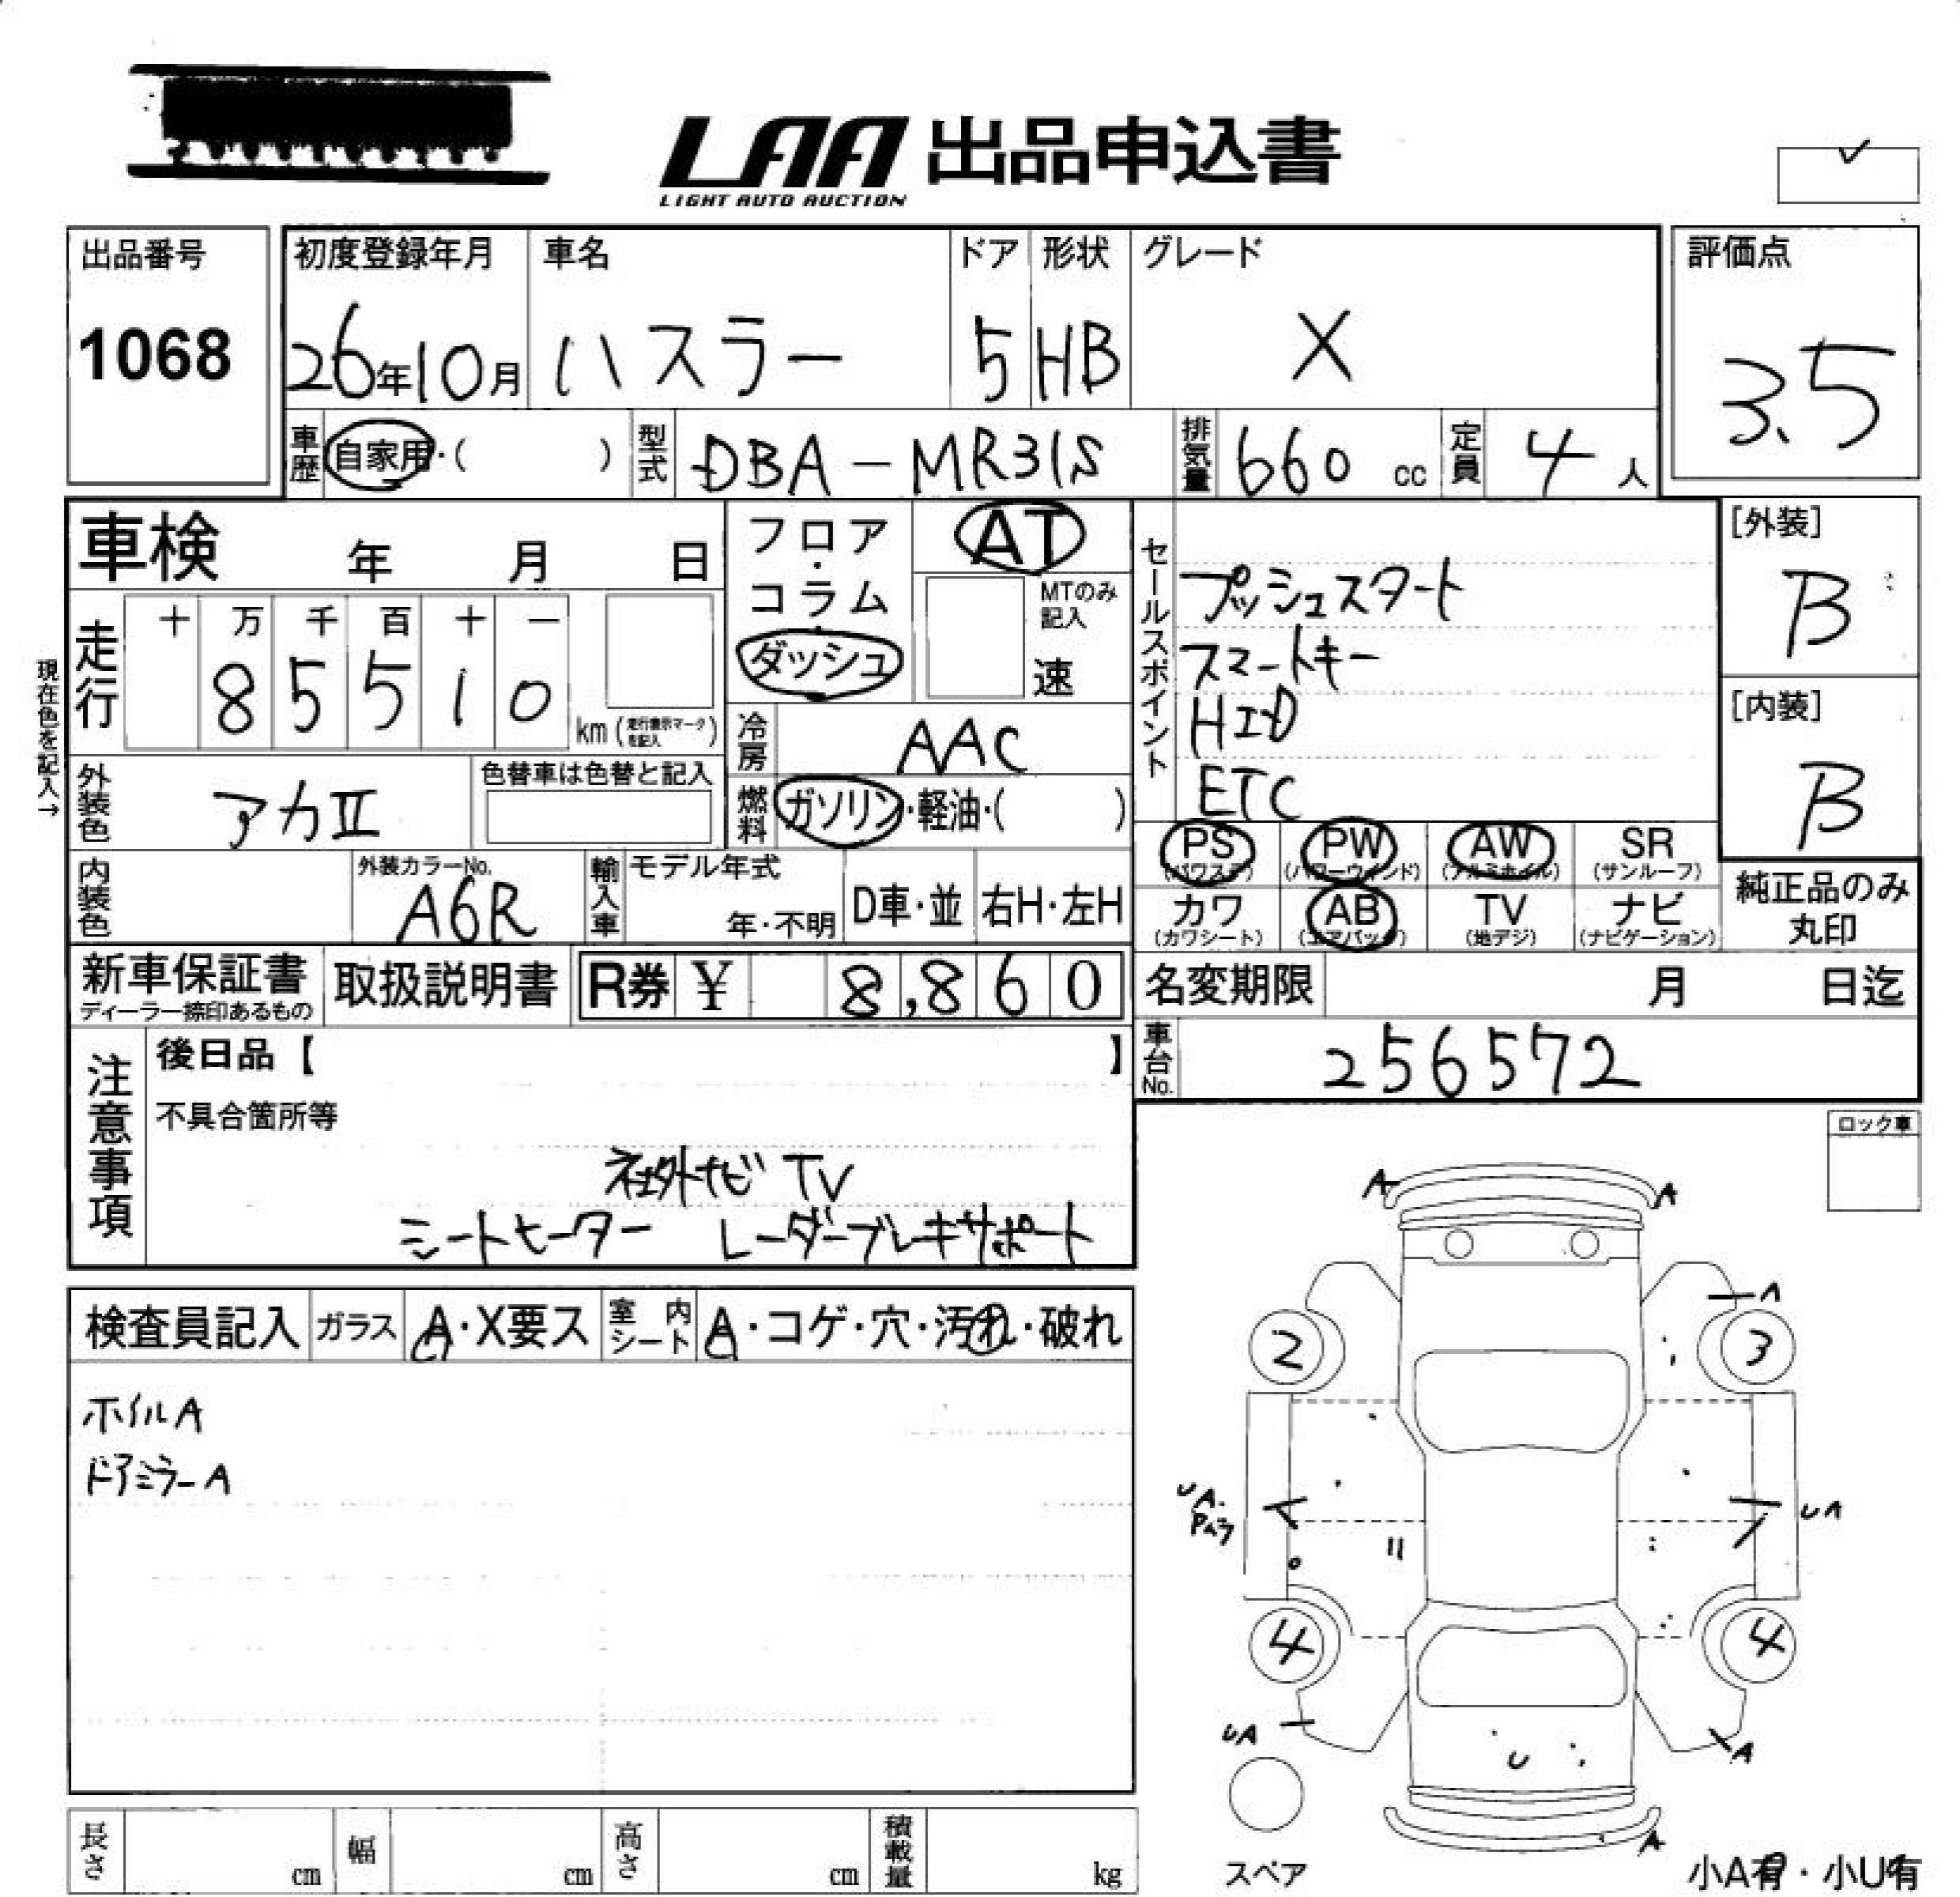 LAA 出品申込書
LIGHT AUTO AUCTION
出品番号
1068
初度登録年月
26年10月
車名
ハスラー
ドア
5
形状
HB
グレード
X
評価点
3.5
車歴
自家用・( )
型式
DBA-MR31S
排気量
660 cc
定員
4 人
車検 年 月 日
フロア・コラム・ダッシュ
AT
MTのみ記入
速
セールスポイント
プッシュスタート
スマートキー
HID
ETC
[外装]
B
[内装]
B
現在色を記入→
走行
十 万 千 百 十 一
8 5 5 1 0
km (走行表示マークを記入)
冷房
AAC
外装色
アカII
色替車は色替と記入
燃料
ガソリン・軽油・( )
PS (パワステ) PW (パワーウィンド) AW (アルミホイル) SR (サンルーフ)
カワ (カワシート) AB (エアバッグ) TV (地デジ) ナビ (ナビゲーション)
純正品のみ丸印
内装色
外装カラーNo.
A6R
輸入車
モデル年式
年・不明
D車・並
右H・左H
新車保証書
ディーラー捺印あるもの
取扱説明書
R券 ¥ 8,860
名変期限 月 日迄
車台No.
256572
注意事項
後日品【 】
不具合箇所等
社外ナビ TV
シートヒーター レーダーブレーキサポート
ロック車
検査員記入
ガラス
A・X要ス
室内シート
A・コゲ・穴・汚れ・破れ
ホイルA
ドアミラーA
A
A
A
2
3
UA.
UA
4
4
UA
U
A
A
スペア
小A有・小U有
長さ cm
幅 cm
高さ cm
積載量 kg